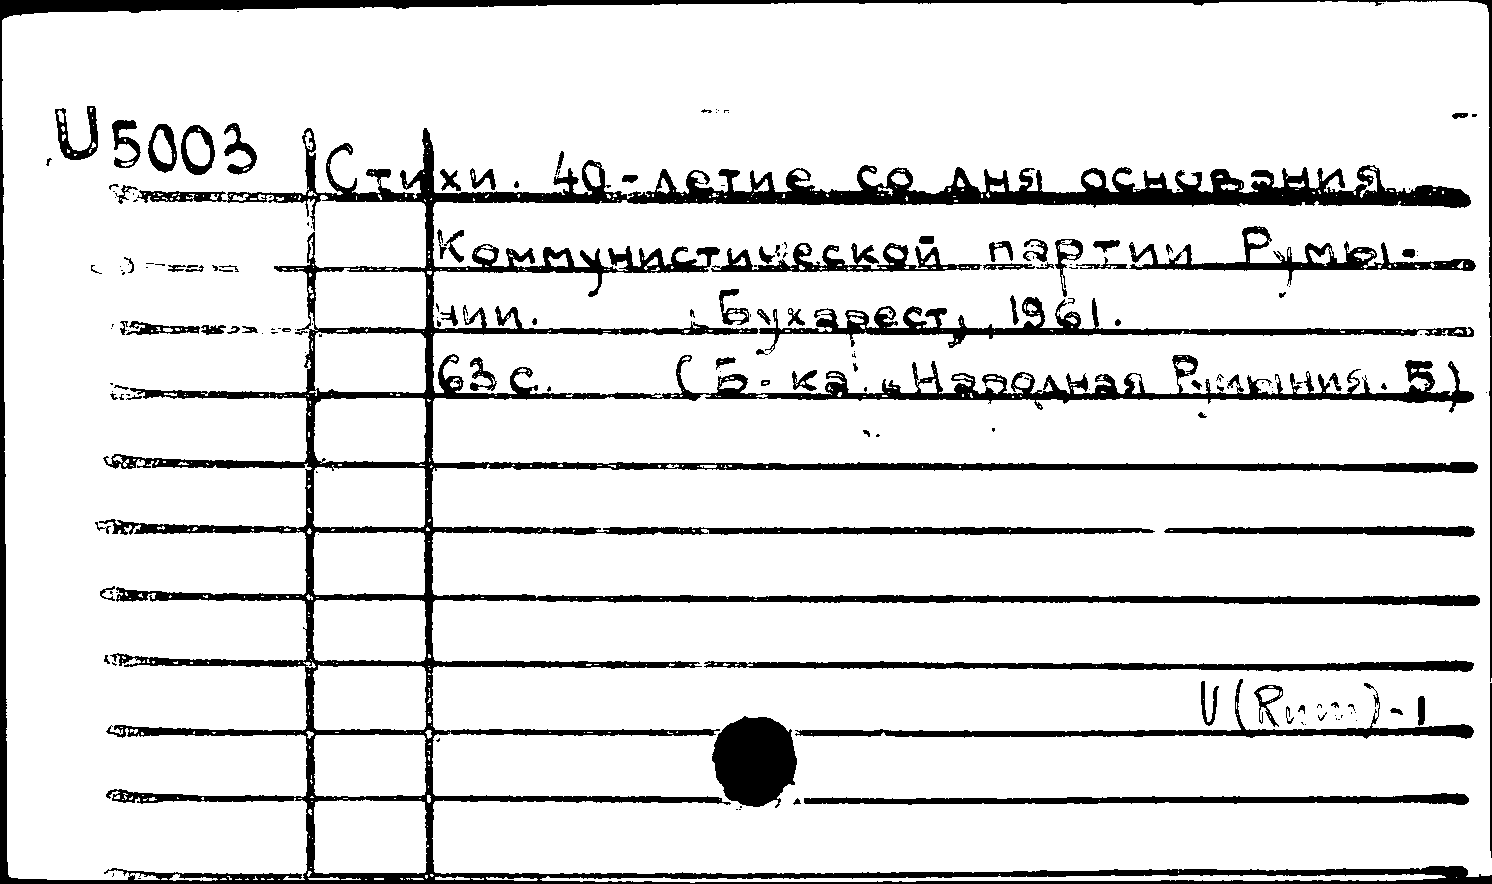 U5003
Стихи. 40-летие со дня основания
Коммунистической партии Румы-
нии. Бухарест, 1961.
63 с. (Б-ка „Народная Румыния. 5)
U (Rum)-1